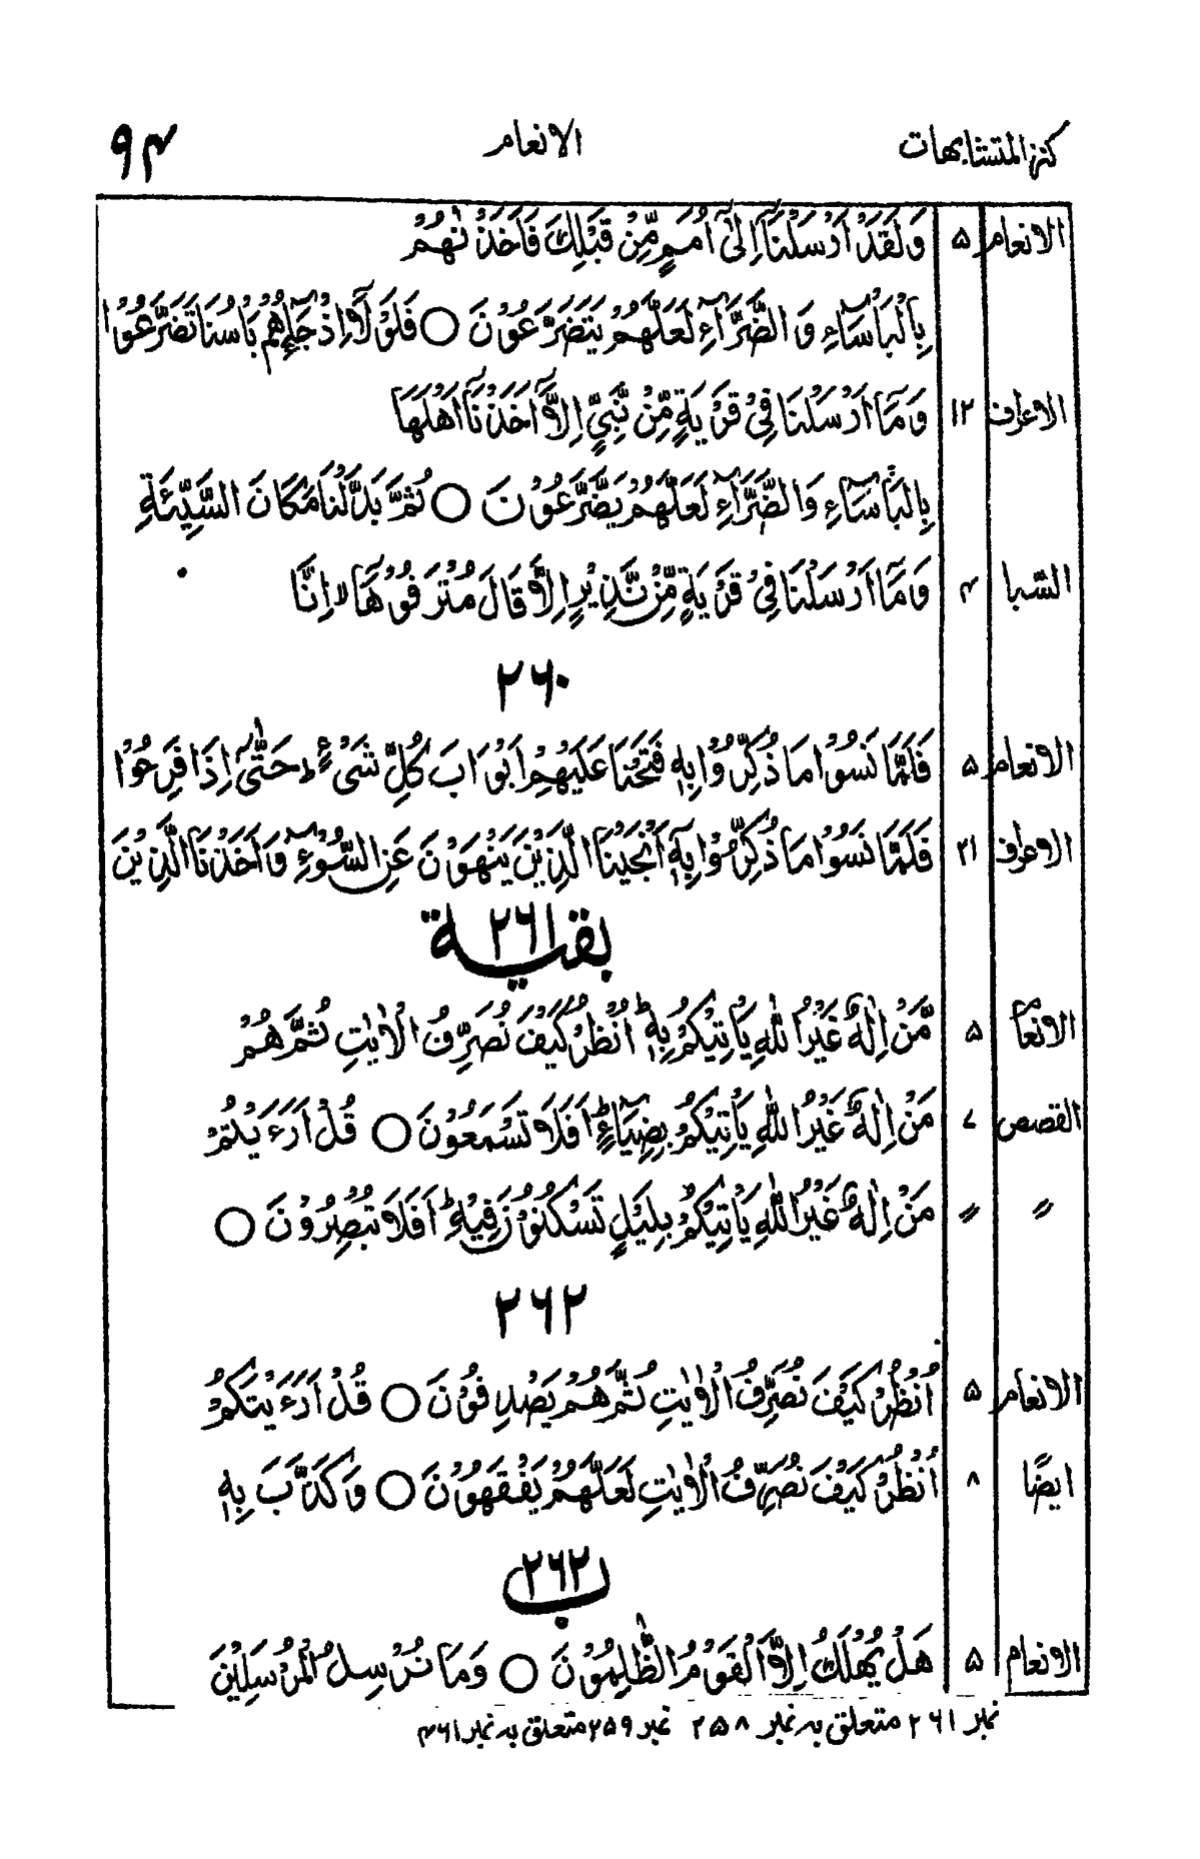 كنز المتشابهات الانعام ۹۴
الانعام ۵ وَلَقَدْ اَرْسَلْنَآ اِلٰٓى اُمَمٍ مِّنْ قَبْلِكَ فَاَخَذْنٰهُمْ
بِالْبَاْسَآءِ وَالضَّرَّآءِ لَعَلَّهُمْ يَتَضَرَّعُوْنَ ○ فَلَوْلَآ اِذْ جَآءَهُمْ بَاْسُنَا تَضَرَّعُوْا
الاعراف ۱۲ وَمَآ اَرْسَلْنَا فِيْ قَرْيَةٍ مِّنْ نَّبِيٍّ اِلَّآ اَخَذْنَآ اَهْلَهَا
بِالْبَاْسَآءِ وَالضَّرَّآءِ لَعَلَّهُمْ يَضَّرَّعُوْنَ ○ ثُمَّ بَدَّلْنَا مَكَانَ السَّيِّئَةِ
السّبا ۴ وَمَآ اَرْسَلْنَا فِيْ قَرْيَةٍ مِّنْ نَّذِيْرٍ اِلَّا قَالَ مُتْرَفُوْهَآ لا اِنَّا
۲۶۰
الانعام ۵ فَلَمَّا نَسُوْا مَا ذُكِّرُوْا بِهٖ فَتَحْنَا عَلَيْهِمْ اَبْوَابَ كُلِّ شَيْءٍ ط حَتّٰٓى اِذَا فَرِحُوْا
الاعراف ۲۱ فَلَمَّا نَسُوْا مَا ذُكِّرُوْا بِهٖٓ اَنْجَيْنَا الَّذِيْنَ يَنْهَوْنَ عَنِ السُّوْٓءِ وَاَخَذْنَا الَّذِيْنَ
بقية ۲۶۱
الانعام ۵ مَّنْ اِلٰهٌ غَيْرُ اللّٰهِ يَاْتِيْكُمْ بِهٖ ط اُنْظُرْ كَيْفَ نُصَرِّفُ الْاٰيٰتِ ثُمَّ هُمْ
القصص ۷ مَنْ اِلٰهٌ غَيْرُ اللّٰهِ يَاْتِيْكُمْ بِضِيَآءٍ ط اَفَلَا تَسْمَعُوْنَ ○ قُلْ اَرَءَيْتُمْ
〃 〃 مَنْ اِلٰهٌ غَيْرُ اللّٰهِ يَاْتِيْكُمْ بِلَيْلٍ تَسْكُنُوْنَ فِيْهِ ط اَفَلَا تُبْصِرُوْنَ ○
۲۶۲
الانعام ۵ اُنْظُرْ كَيْفَ نُصَرِّفُ الْاٰيٰتِ ثُمَّ هُمْ يَصْدِفُوْنَ ○ قُلْ اَرَءَيْتَكُمْ
ايضًا ۸ اُنْظُرْ كَيْفَ نُصَرِّفُ الْاٰيٰتِ لَعَلَّهُمْ يَفْقَهُوْنَ ○ وَكَذَّبَ بِهٖ
۲۶۲ ب
الانعام ۵ هَلْ يُهْلَكُ اِلَّا الْقَوْمُ الظّٰلِمُوْنَ ○ وَمَا نُرْسِلُ الْمُرْسَلِيْنَ
نمبر ۲۶۱ متعلق بہ نمبر ۲۵۸ نمبر ۲۵۹ متعلق بہ نمبر ۴۶۱